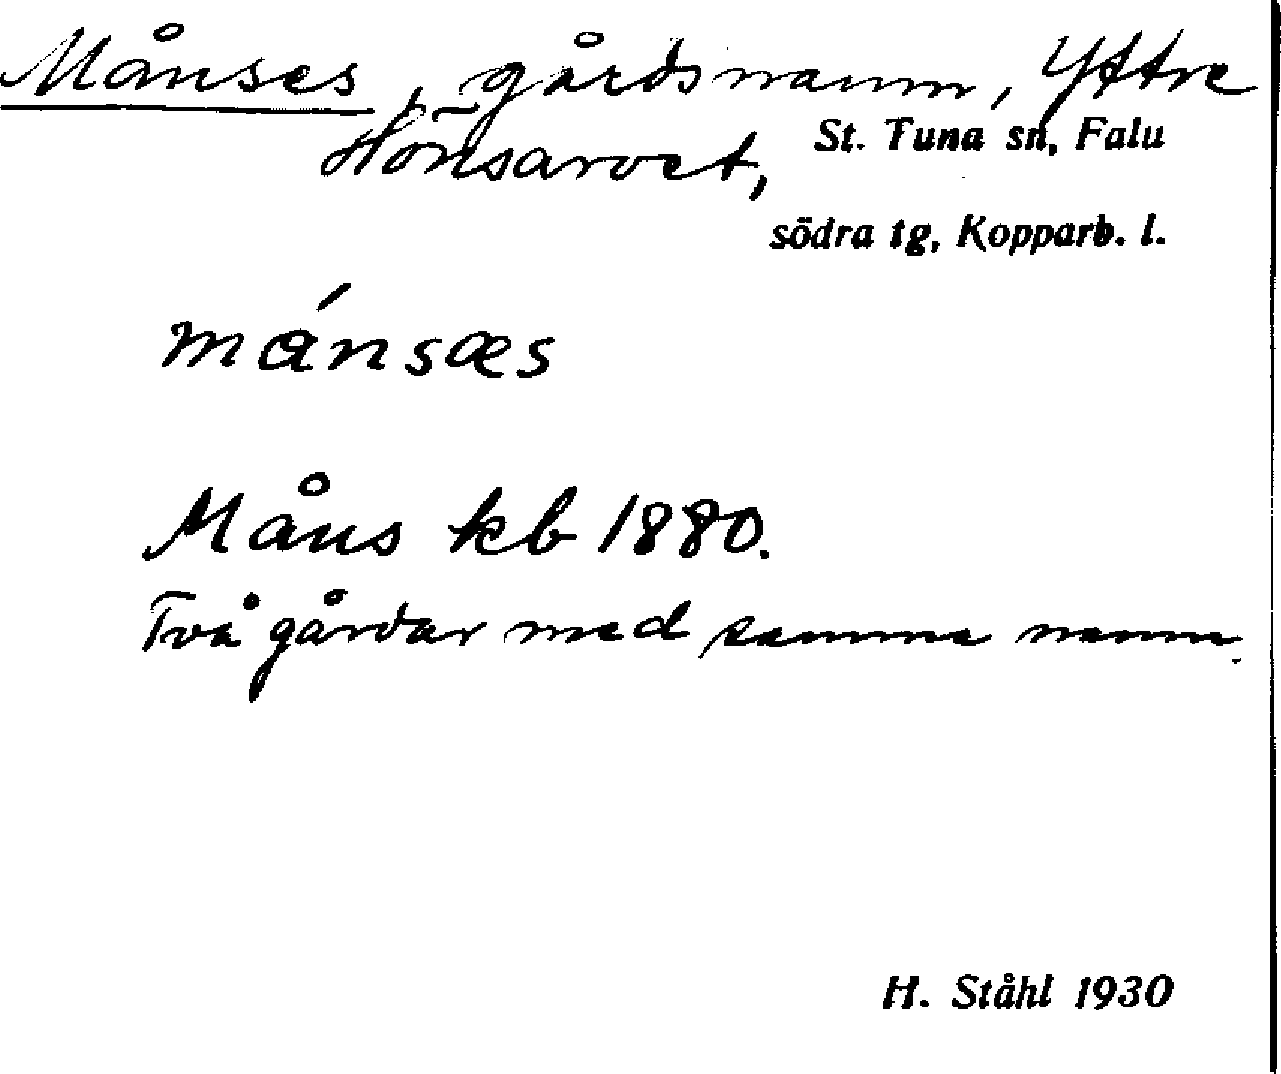 Månses, gårdsnamn, Yttre
Hönsarvet, St. Tuna sn, Falu
södra tg, Kopparb. l.
mánsæs
Måns kb 1880.
Två gårdar med samma namn.
H. Ståhl 1930